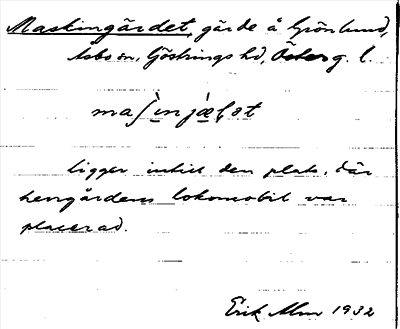 Maskingärdet, gärde å Grönlund,
Asbo sn, Göstrings hd, Österg. l.
maʃìnjæ̀ḷət
ligger intill den plats, där
herrgårdens lokomobil var
placerad.
Erik Alm 1932